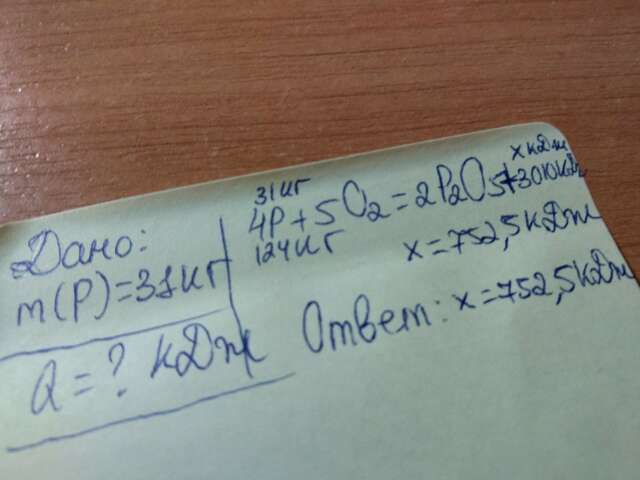 Дано:
m(P)=31кг
Q=? кДж
31кг
x кДж
4P+5O2=2P2O5+3010кДж
124кг
x=752,5кДж
Ответ: x=752,5кДж